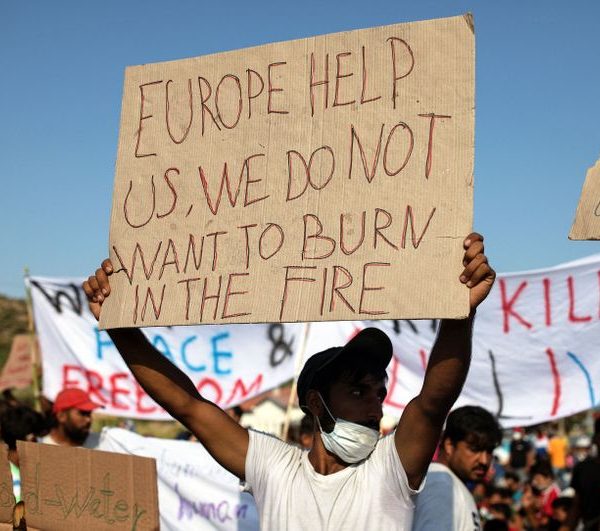 EUROPE HELP
US, WE DO NOT
WANT TO BURN
IN THE FIRE
&
FREEDOM
KILL
d-water
human